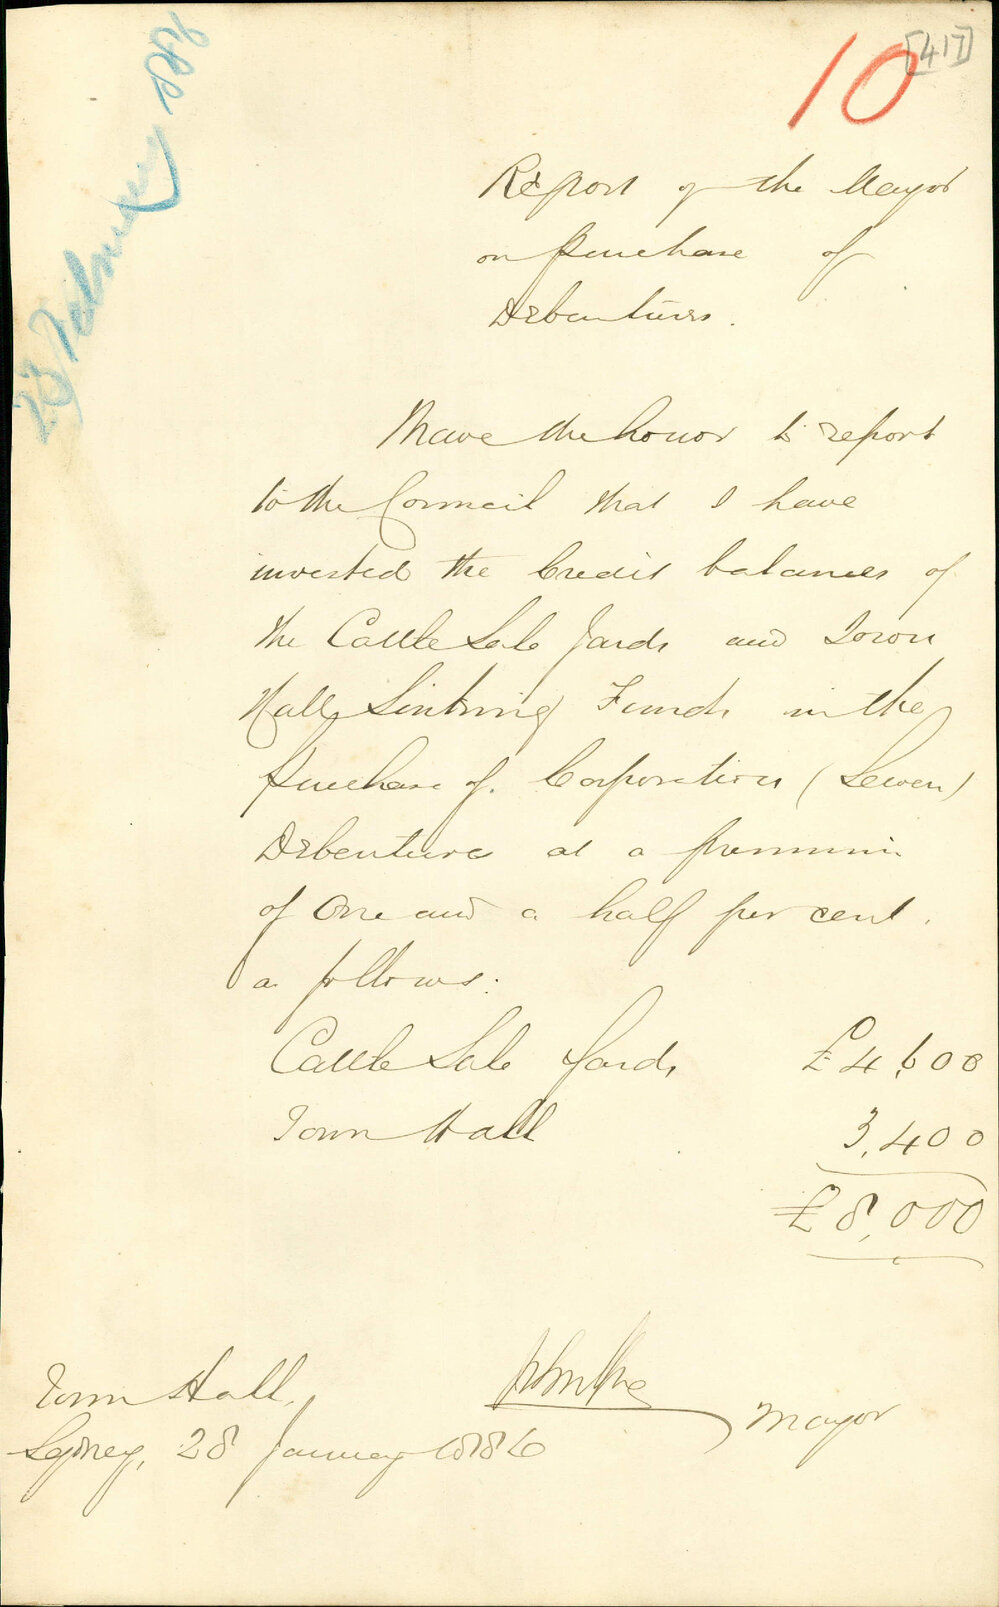 10
[417]
23 February 86
Report of the Mayor
on purchase of
Debentures.
I have the honor to report
to the Council that I have
invested the Credit balances of
the Cattle Sale Yards and Town
Hall Sinking Funds in the
purchase of Corporation (Sewer)
Debentures at a premium
of One and a half per cent.
as follows:
Cattle Sale Yards £4,600
Town Hall 3,400
£8,000
Mayor
Town Hall,
Sydney, 28 January 1886